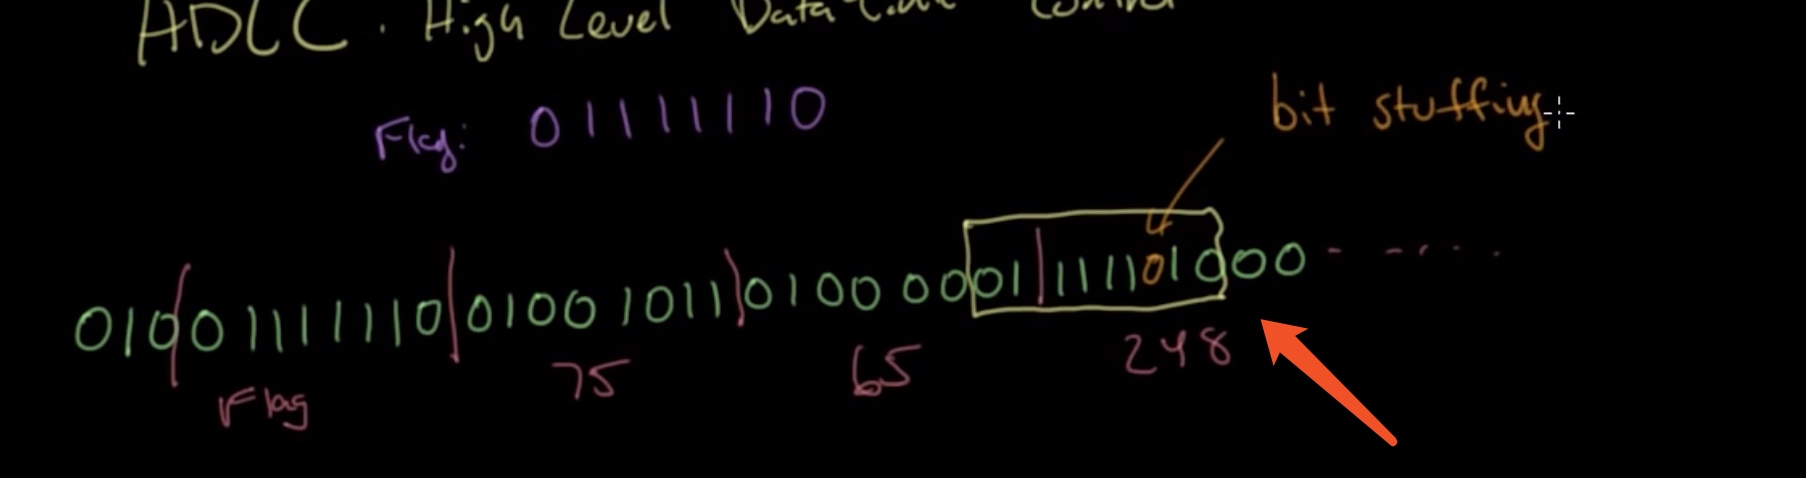 HDLC : High Level Data Link Control
Flag: 01111110
bit stuffing
010|01111110|01001011|01000001|111101000- - - - -
Flag 75 65 248